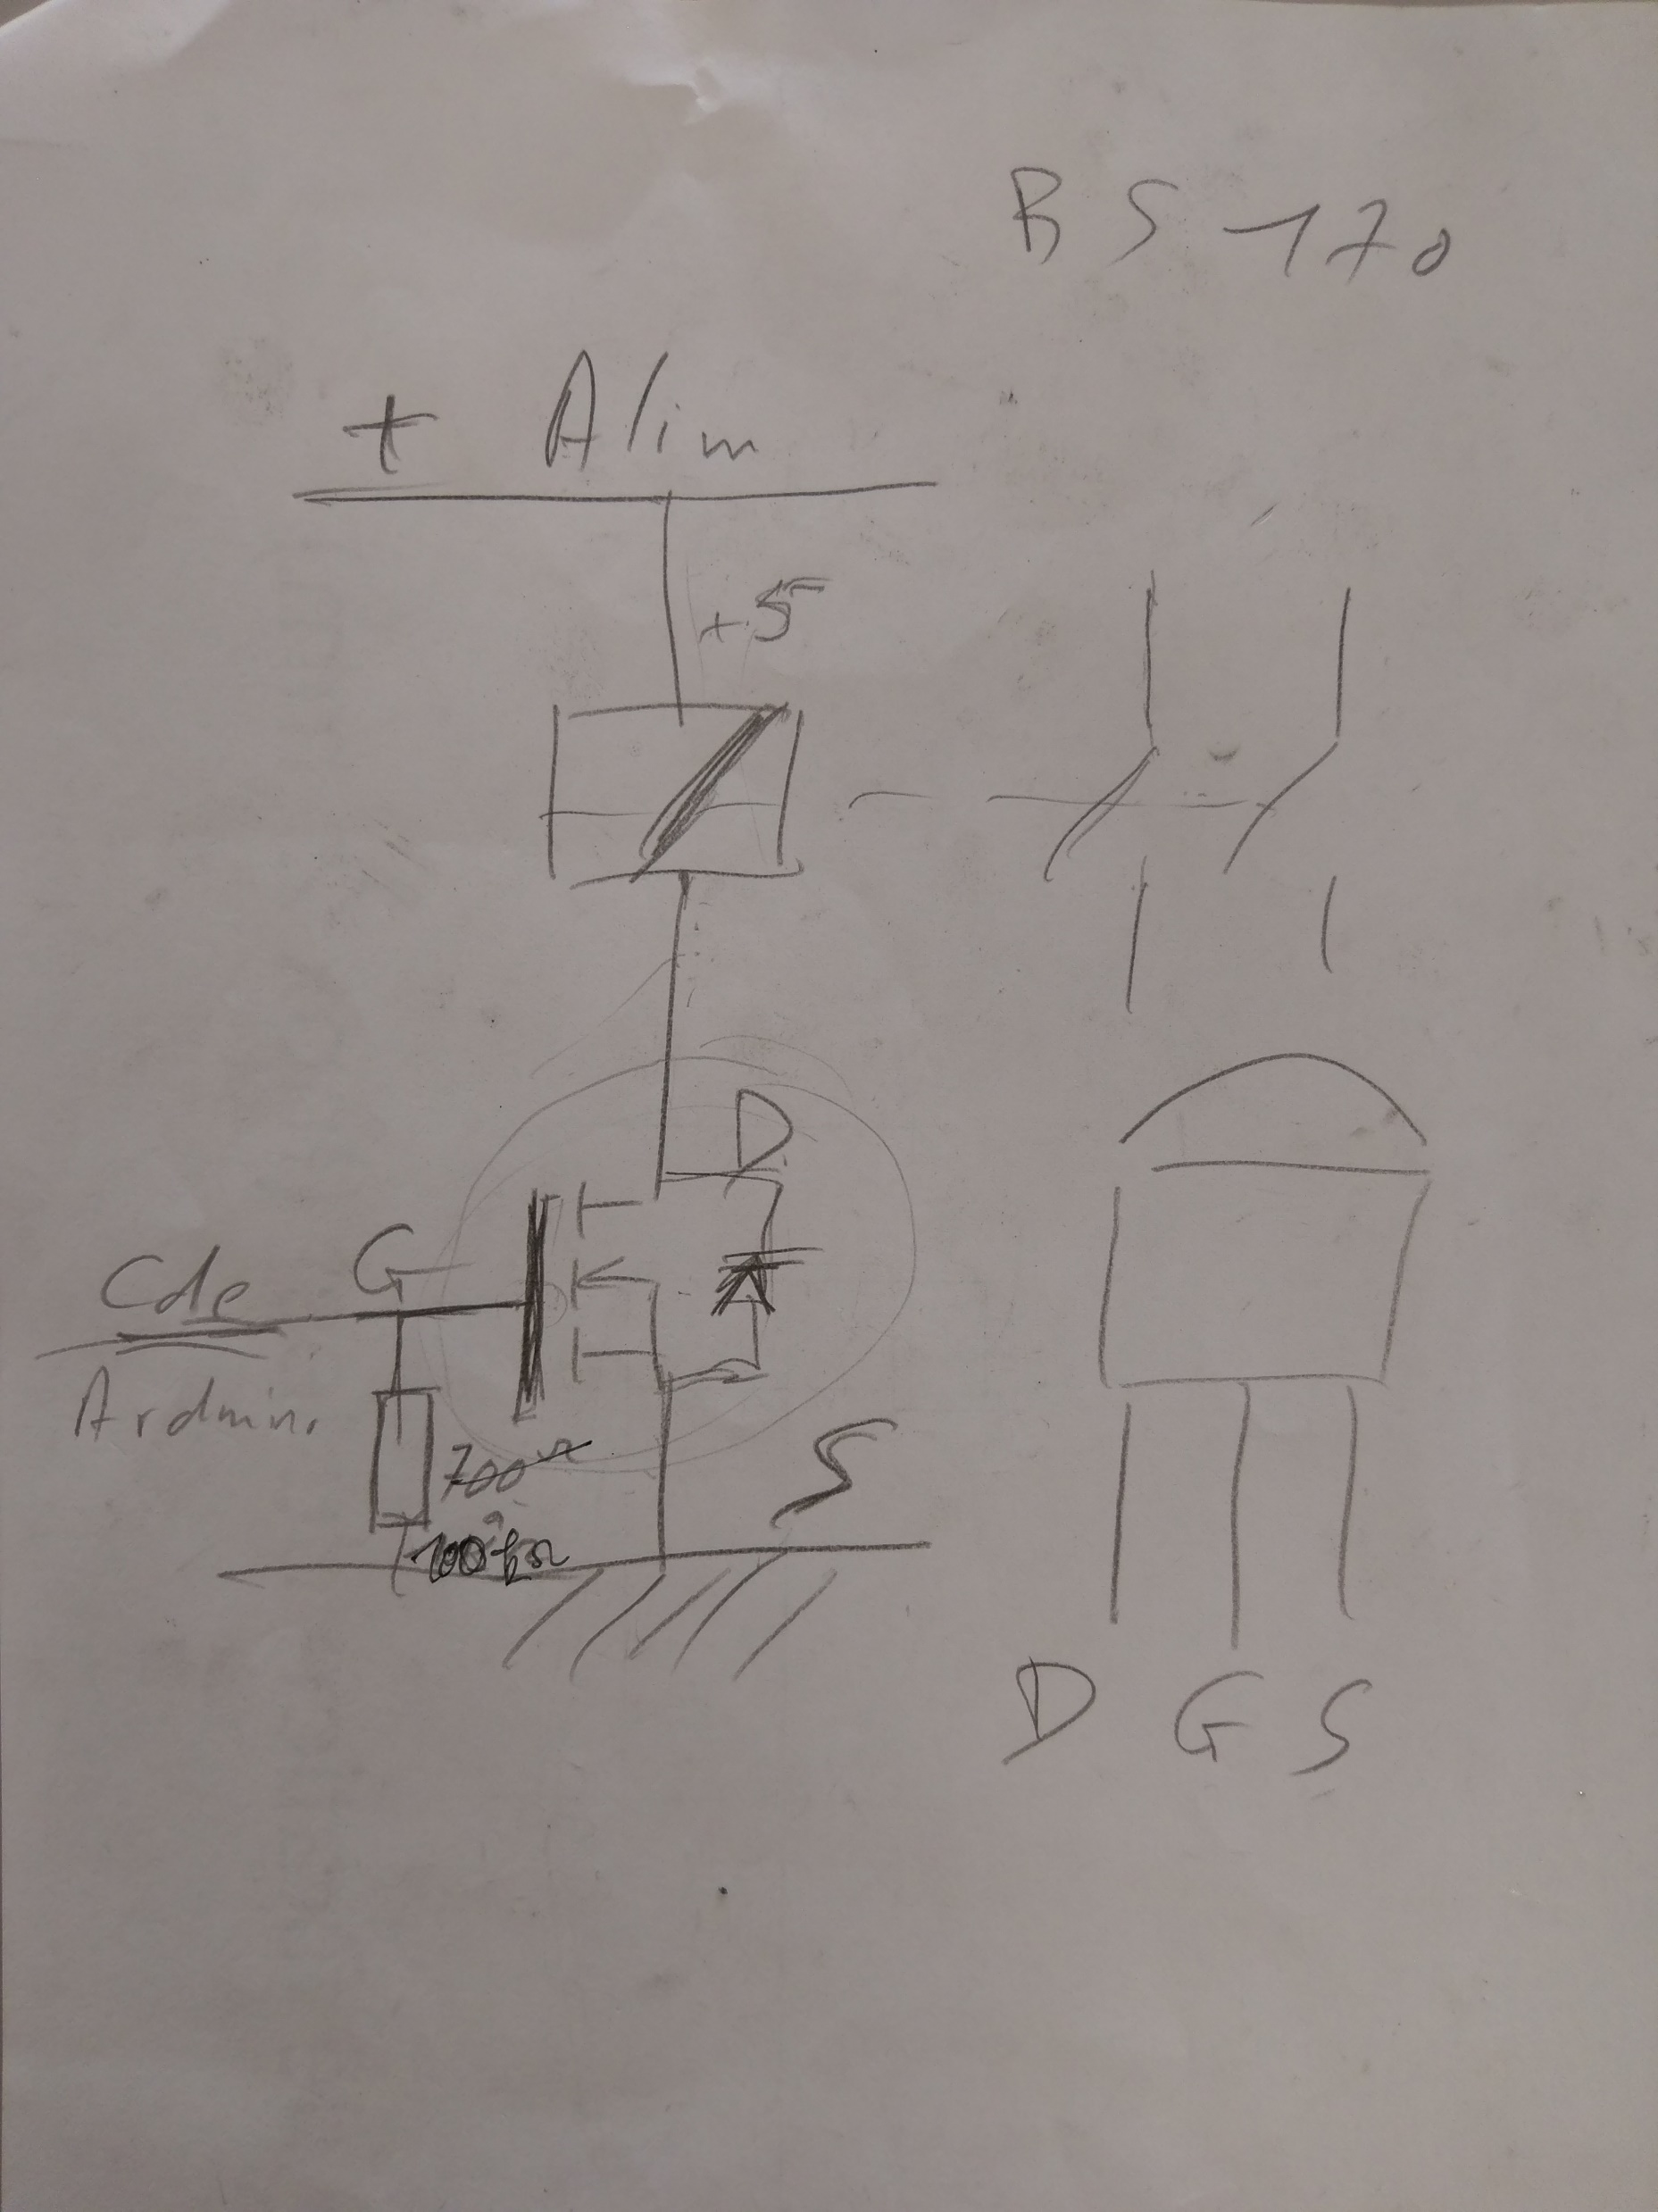 BS170
+ Alim
+5
D
G
Cde
Arduino
S
100kΩ
D G S